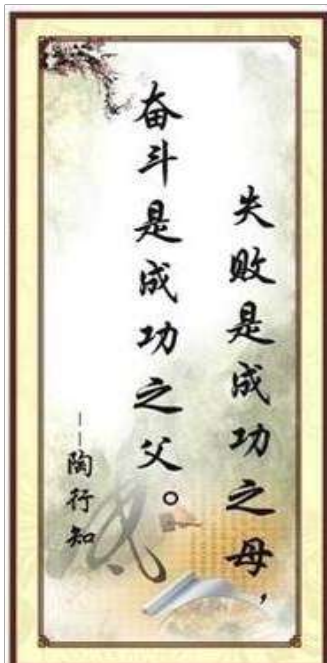 失败是成功之母，
奋斗是成功之父。
——陶行知